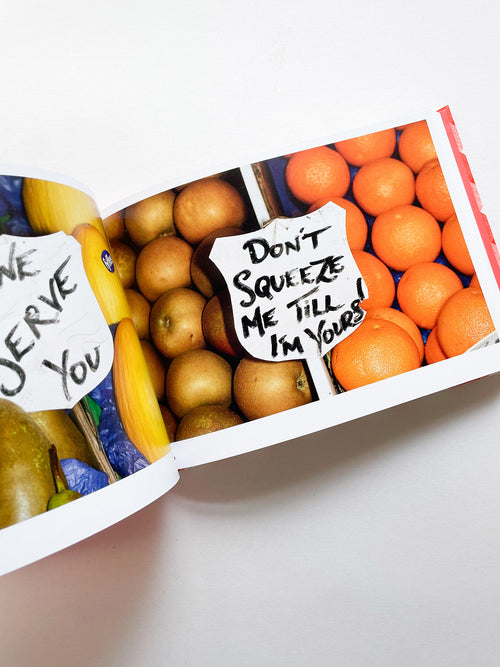 WE
SERVE
YOU
DON'T
SQUEEZE
ME TILL
I'M YOURS!